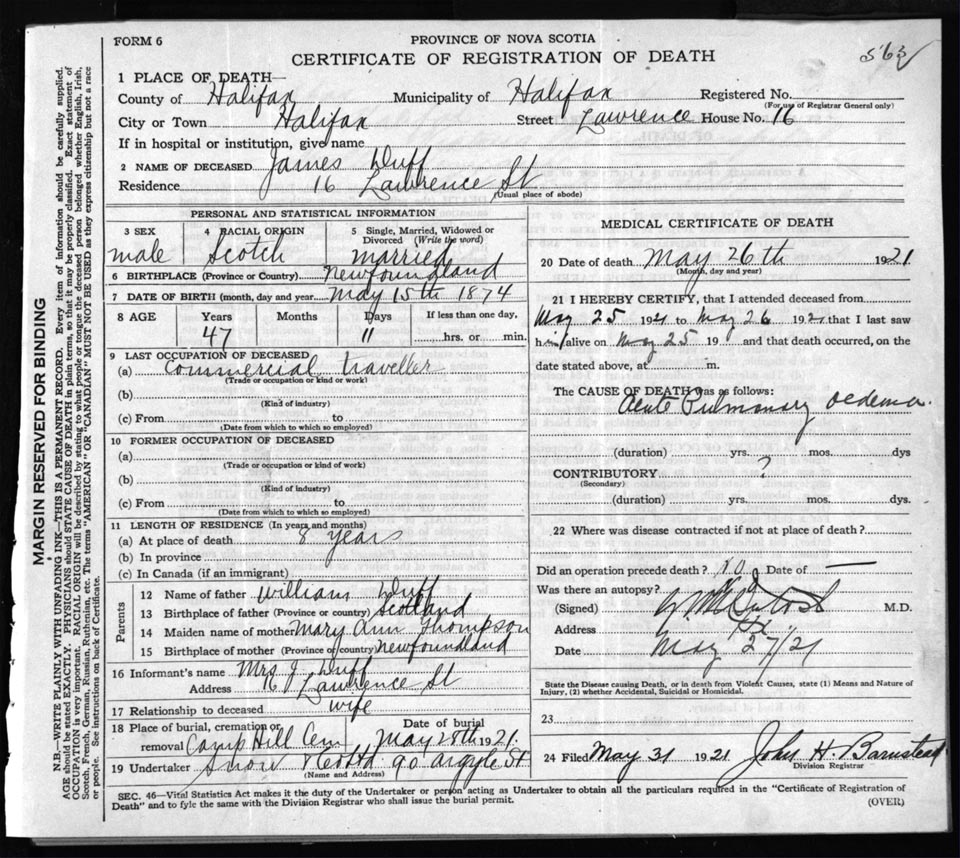 FORM 6
PROVINCE OF NOVA SCOTIA
CERTIFICATE OF REGISTRATION OF DEATH
563
1 PLACE OF DEATH—
County of Halifax Municipality of Halifax Registered No.
(For use of Registrar General only)
City or Town Halifax Street Lawrence House No. 16
If in hospital or institution, give name
2 NAME OF DECEASED James Duff
Residence 16 Lawrence St
(Usual place of abode)
PERSONAL AND STATISTICAL INFORMATION
3 SEX male
4 RACIAL ORIGIN Scotch
5 Single, Married, Widowed or Divorced (Write the word) married
6 BIRTHPLACE (Province or Country) Newfoundland
7 DATE OF BIRTH (month, day and year) May 15th 1874
8 AGE Years Months Days If less than one day,
47 11 hrs. or min.
9 LAST OCCUPATION OF DECEASED
(a) Commercial traveller
(Trade or occupation or kind or work)
(b)
(Kind of industry)
(c) From to
(Date from which to which so employed)
10 FORMER OCCUPATION OF DECEASED
(a)
(Trade or occupation or kind of work)
(b)
(Kind of industry)
(c) From to
(Date from which to which so employed)
11 LENGTH OF RESIDENCE (In years and months)
(a) At place of death 8 years
(b) In province
(c) In Canada (if an immigrant)
Parents
12 Name of father William Duff
13 Birthplace of father (Province or country) Scotland
14 Maiden name of mother Mary Ann Thompson
15 Birthplace of mother (Province or country) Newfoundland
16 Informant's name Mrs J. Duff
Address 16 Lawrence St
17 Relationship to deceased wife
18 Place of burial, cremation or removal Camp Hill Cem Date of burial May 28th 1921.
19 Undertaker Snow 90 Argyle St
(Name and Address)
MEDICAL CERTIFICATE OF DEATH
20 Date of death May 26th 1921
(Month, day and year)
21 I HEREBY CERTIFY, that I attended deceased from
May 25 1921 to May 26 1921 that I last saw
him alive on May 25 19 and that death occurred, on the
date stated above, at m.
The CAUSE OF DEATH was as follows:
Acute Pulmonary oedema.
(duration) yrs. mos. dys
CONTRIBUTORY ?
(Secondary)
(duration) yrs. mos. dys.
22 Where was disease contracted if not at place of death?
Did an operation precede death? No Date of —
Was there an autopsy?
(Signed) McIntosh M.D.
Address
Date May 27/21
State the Disease causing Death, or in death from Violent Causes, state (1) Means and Nature of
Injury, (2) whether Accidental, Suicidal or Homicidal.
23
24 Filed May 31 1921 John H. Barnstead
Division Registrar
SEC. 46—Vital Statistics Act makes it the duty of the Undertaker or person acting as Undertaker to obtain all the particulars required in the "Certificate of Registration of
Death" and to fyle the same with the Division Registrar who shall issue the burial permit.
(OVER)
MARGIN RESERVED FOR BINDING
N.B.—WRITE PLAINLY WITH UNFADING INK—THIS IS A PERMANENT RECORD. Every item of information should be carefully supplied.
AGE should be stated EXACTLY. PHYSICIANS should STATE CAUSE OF DEATH in plain terms, so that it may be properly classified. Exact statement of
OCCUPATION is very important. RACIAL ORIGIN will be described by stating to what people or tongue the deceased person belonged whether English, Irish,
Scotch, French, German, Russian, Ruthenian, etc. The terms "AMERICAN" or "CANADIAN" MUST NOT BE USED as they express citizenship but not a race
or people. See instructions on back of Certificate.